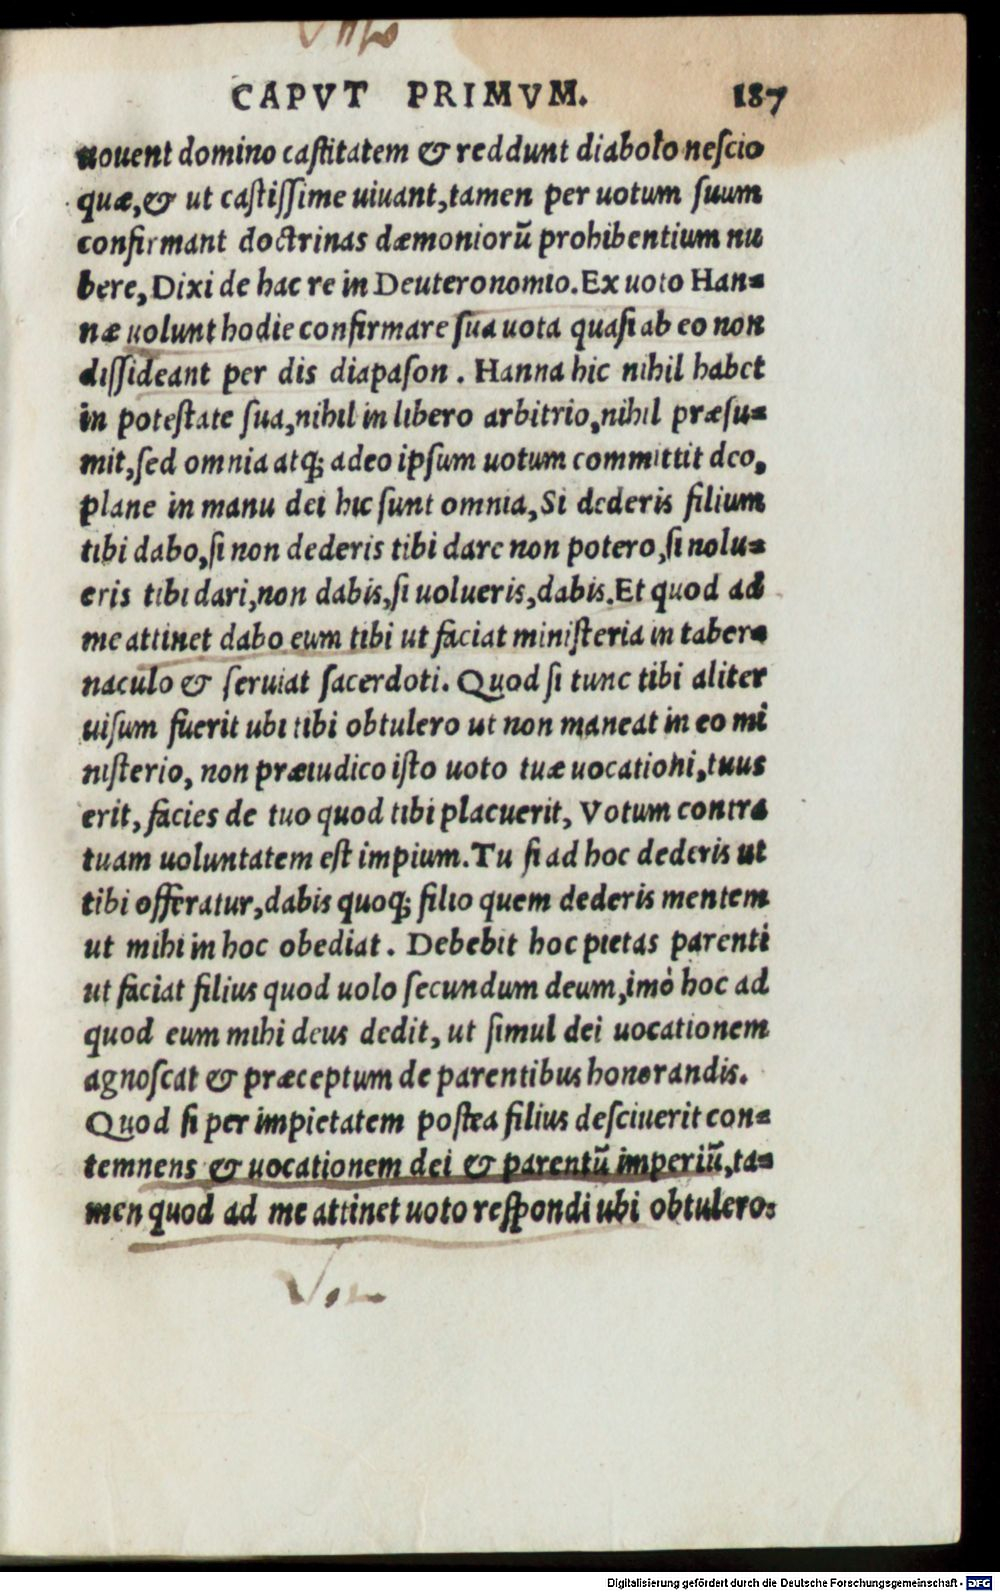 CAPVT PRIMVM. 187
uouent domino castitatem & reddunt diabolo nescio
quæ, & ut castissime uiuant, tamen per uotum suum
confirmant doctrinas dæmoniorū prohibentium nu
bere, Dixi de hac re in Deuteronomio. Ex uoto Han=
næ uolunt hodie confirmare sua uota quasi ab eo non
dissideant per dis diapason. Hanna hic nihil habet
in potestate sua, nihil in libero arbitrio, nihil præsu=
mit, sed omnia atq; adeo ipsum uotum committit deo,
plane in manu dei hic sunt omnia, Si dederis filium
tibi dabo, si non dederis tibi dare non potero, si nolu=
eris tibi dari, non dabis, si uolueris, dabis. Et quod ad
me attinet dabo eum tibi ut faciat ministeria in taber=
naculo & seruiat sacerdoti. Quod si tunc tibi aliter
uisum fuerit ubi tibi obtulero ut non maneat in eo mi
nisterio, non præiudico isto uoto tuæ uocationi, tuus
erit, facies de tuo quod tibi placuerit, Votum contra
tuam uoluntatem est impium. Tu si ad hoc dederis ut
tibi offeratur, dabis quoq; filio quem dederis mentem
ut mihi in hoc obediat. Debebit hoc pietas parenti
ut faciat filius quod uolo secundum deum, imò hoc ad
quod eum mihi deus dedit, ut simul dei uocationem
agnoscat & præceptum de parentibus honorandis.
Quod si per impietatem postea filius desciuerit con=
temnens & uocationem dei & parentū imperiū, ta=
men quod ad me attinet uoto respondi ubi obtulero:
Digitalisierung gefördert durch die Deutsche Forschungsgemeinschaft - DFG